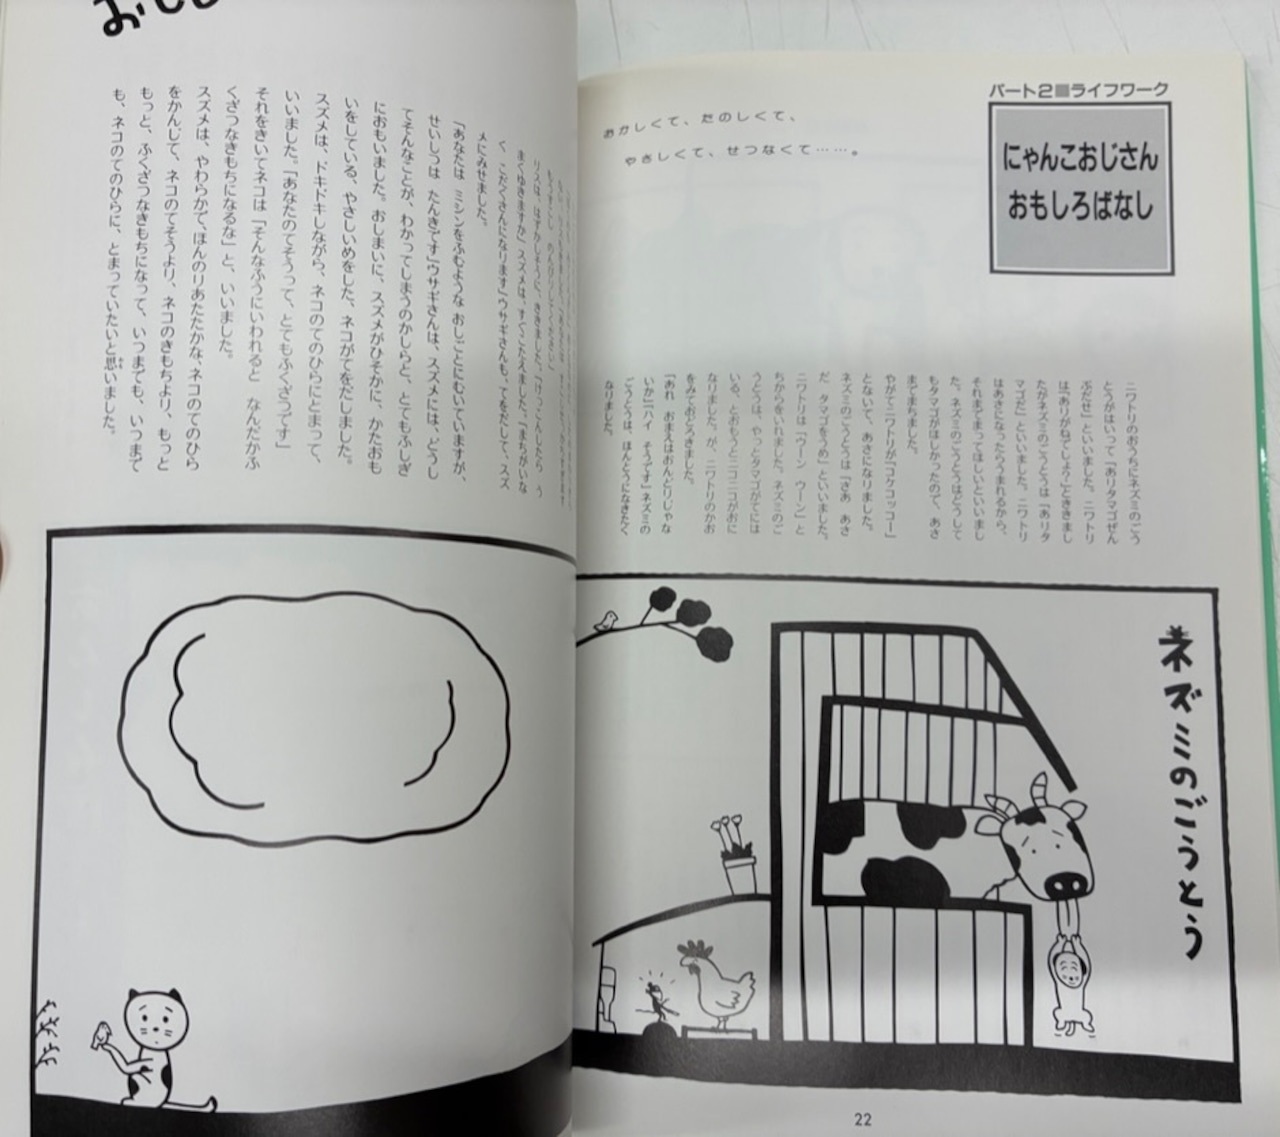 パート2■ライフワーク
にゃんこおじさん
おもしろばなし
おかしくて、たのしくて、
やさしくて、せつなくて……。
ニワトリのおうちにネズミのごう
とうがはいって「ありタマゴぜん
ぶだせ」といいました。ニワトリ
は「ありがねでしょ?」とききまし
たがネズミのごうとうは「ありタ
マゴだ」といいました。ニワトリ
はあさになったらうまれるから、
それまでまってほしいといいまし
た。ネズミのごうとうはどうして
もタマゴがほしかったので、あさ
までまちました。
やがてニワトリが「コケコッコー」
とないて、あさになりました。
ネズミのごうとうは「さあ あさ
だ タマゴをうめ」といいました。
ニワトリは「ウーン ウーン」と
ちからをいれました。ネズミのご
うとうは、やっとタマゴがてには
いる、とおもうとニコニコがおに
なりました。が、ニワトリのかお
をみておどろきました。
「あれ おまえはおんどりじゃな
いか」「ハイ そうです」ネズミの
ごうとうは、ほんとうになきたく
なりました。
ネズミのごうとう
22
リスは、はずかしそうに、ききました。「けっこんしたら う
まくゆきますか」スズメは、すぐこたえました。「まちがいな
く こだくさんになります」ウサギさんも、てをだして、スズ
メにみせました。
「あなたは ミシンをふむような おしごとにむいていますが、
せいしつは たんきです」ウサギさんは、スズメには、どうし
てそんなことが、わかってしまうのかしらと、とてもふしぎ
におもいました。おしまいに、スズメがひそかに、かたおも
いをしている、やさしいめをした、ネコがてをだしました。
スズメは、ドキドキしながら、ネコのてのひらにとまって、
いいました。「あなたのてそうって、とてもふくざつです」
それをきいてネコは「そんなふうにいわれると なんだかふ
くざつなきもちになるな」と、いいました。
スズメは、やわらかで、ほんのりあたたかな、ネコのてのひら
をかんじて、ネコのてそうより、ネコのきもちより、もっと
もっと、ふくざつなきもちになって、いつまでも、いつまで
も、ネコのてのひらに、とまっていたいと思いました。